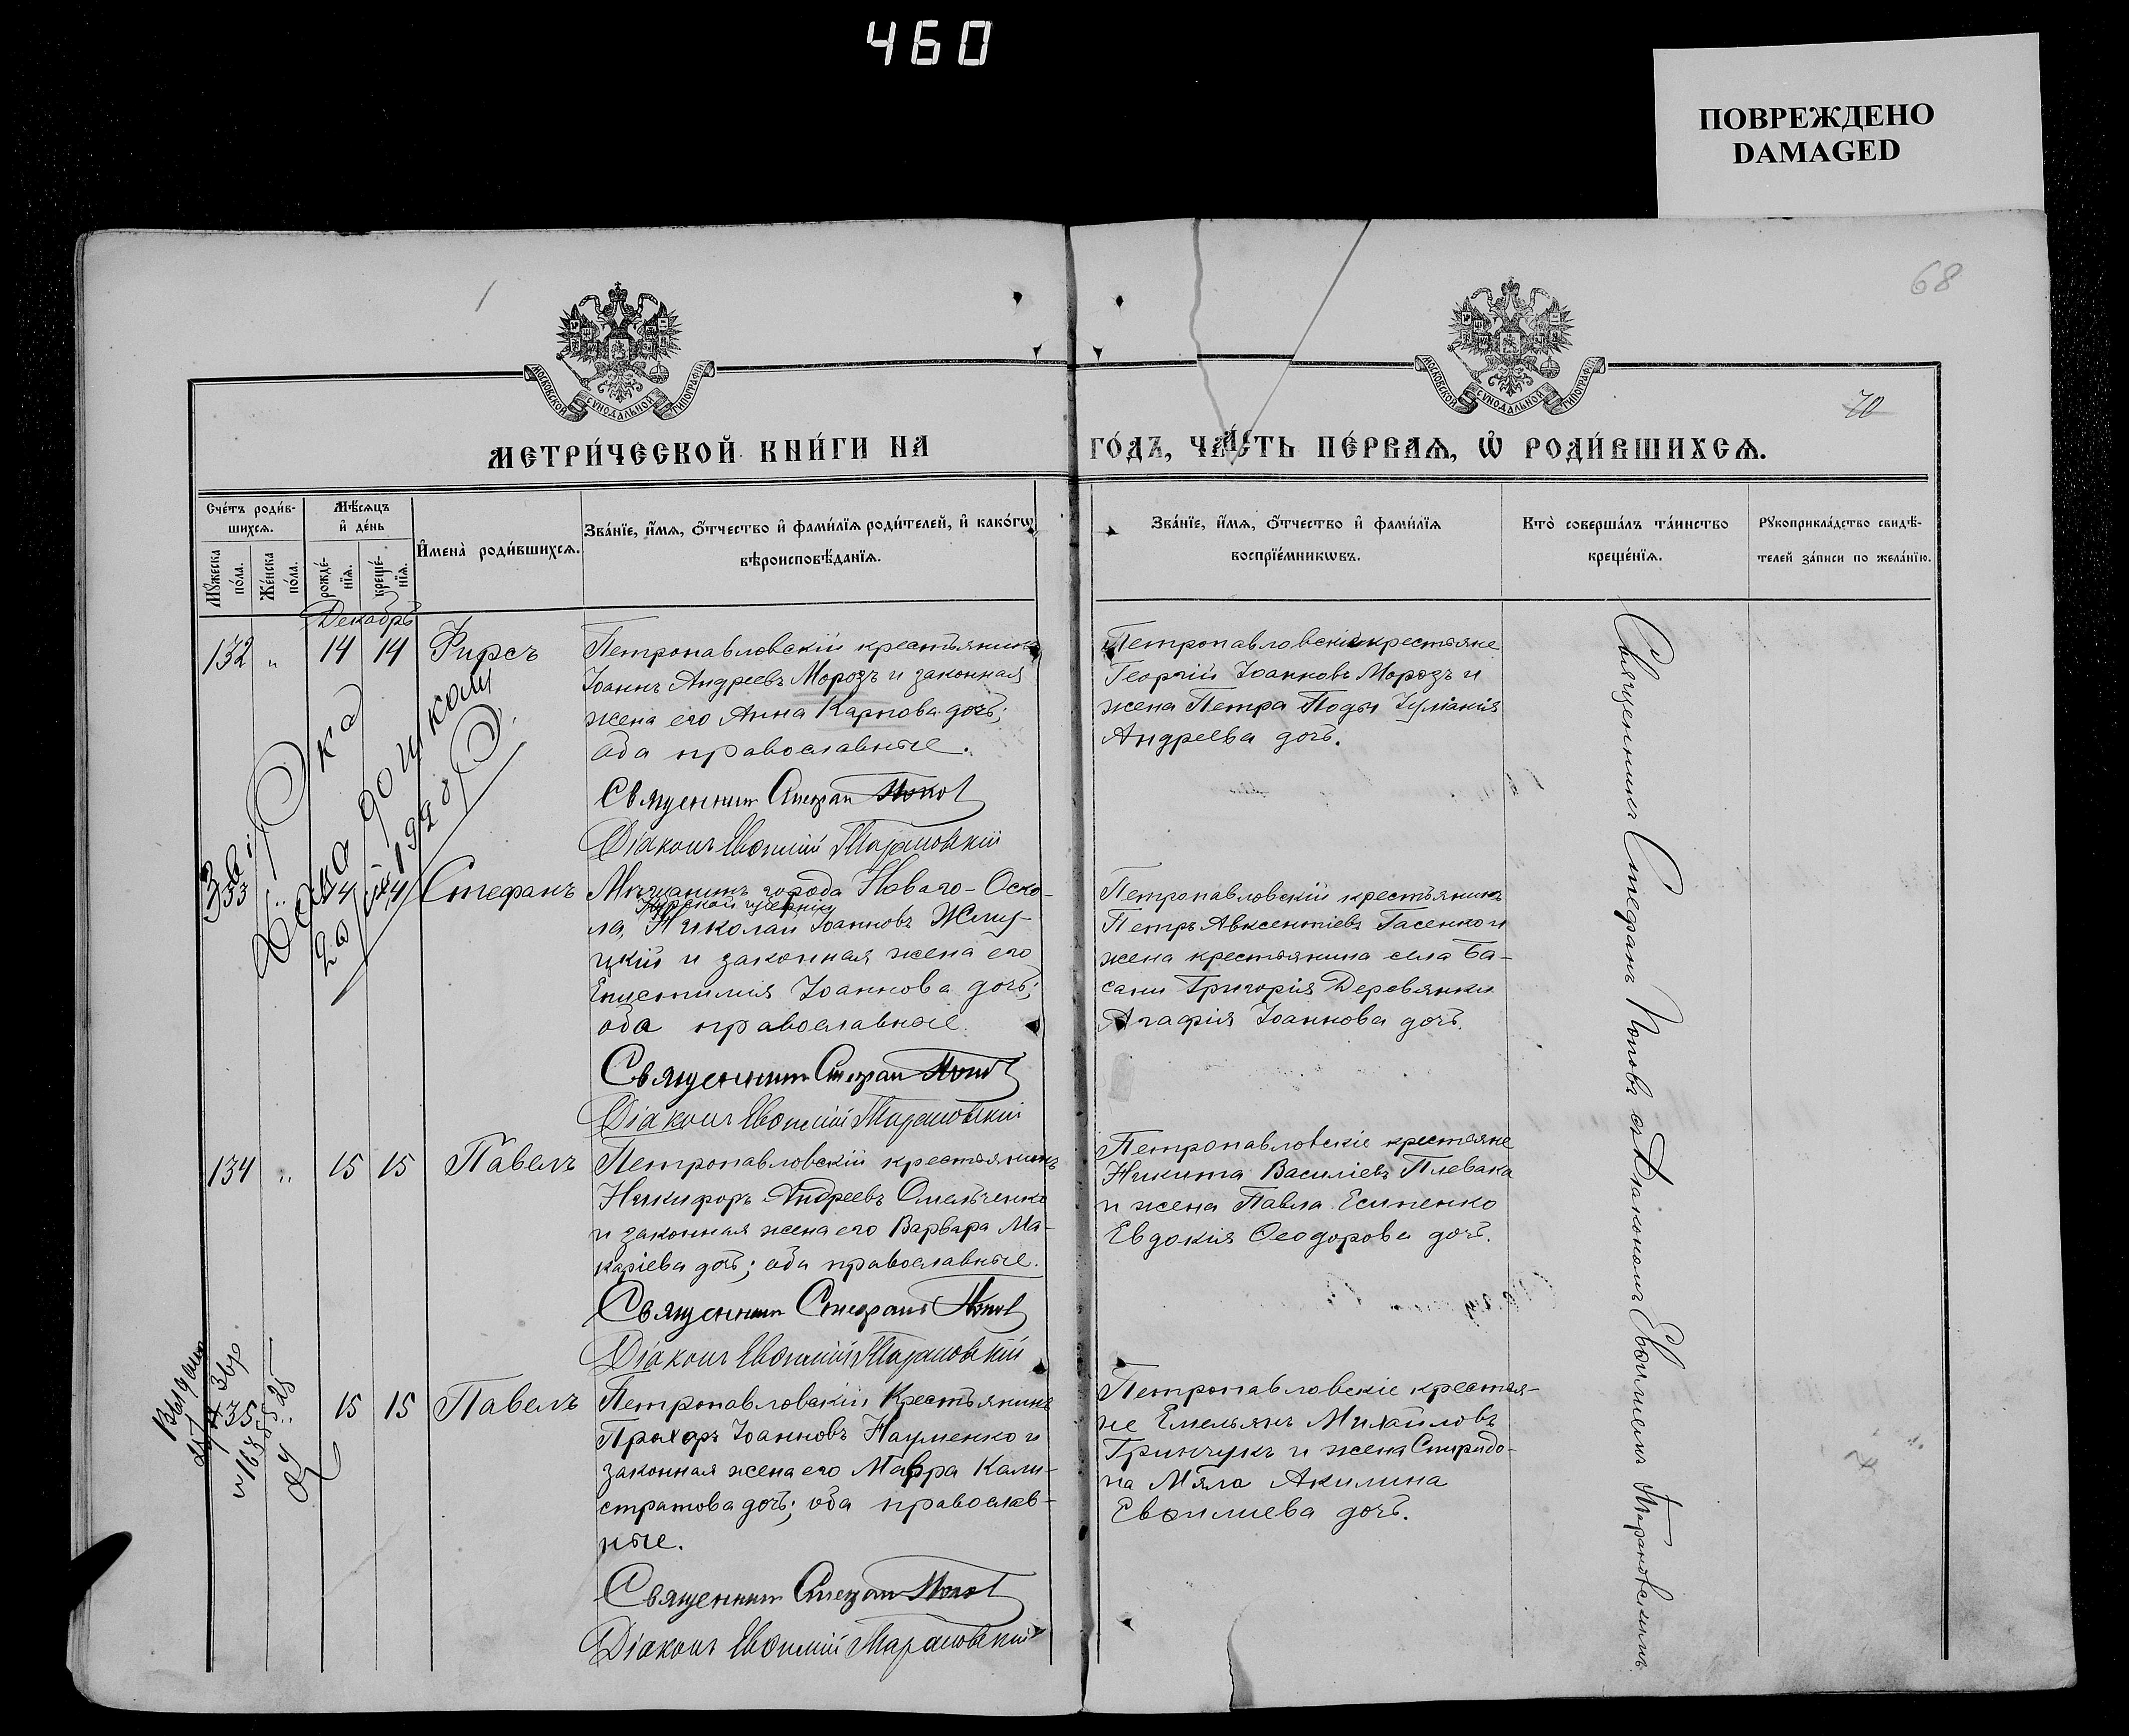 460
ПОВРЕЖДЕНО
DAMAGED
68
МОСКОВСКОЙ СѴНОДАЛЬНОЙ ТИПОГРАФІИ
МОСКОВСКОЙ СѴНОДАЛЬНОЙ ТИПОГРАФІИ
70
МЕТРИ́ЧЕСКОЙ КНИ́ГИ НА
ГО́ДЪ, ЧА́СТЬ ПЕ́РВАѦ, Ѡ҆ РОДИ́ВШИХСѦ.
Сче́тъ роди́в-
шихсѧ.
Мꙋ́жеска
по́ла.
Же́нска
по́ла.
Мѣ́сѧцъ
и҆ де́нь
рожде́-
нїѧ.
креще́-
нїѧ.
И҆мена̀ роди́вшихсѧ.
Зва́нїе, и҆́мѧ, ѻ҆́тчество и҆ фами́лїѧ роди́телей, и҆ како́гѡ
вѣроисповѣ́данїѧ.
Зва́нїе, и҆́мѧ, ѻ҆́тчество и҆ фами́лїѧ
воспрїе́мникѡвъ.
Кто̀ соверша́лъ та́инство
креще́нїѧ.
Рꙋкоприкла́дство свидѣ́-
телей за́писи по жела́нїю.
Декабрь
132 " 14 14 Фирсъ
Петропавловскій крестьянинъ
Іоаннъ Андреевъ Морозъ и законная
жена его Анна Карпова дочь;
оба православные.
Священник Стефан Попов
Діаконъ Евѳимій Тарановскій
Петропавловскіе крестьяне
Георгій Іоанновъ Морозъ и
жена Петра
Андреева дочь.
14 14 Стефанъ
Мѣщанинъ города Новаго-Оско-
Курской губерніи
ла, Николай Іоанновъ Жму-
цкій и законная жена его
Епистимія Іоаннова дочь;
оба православные.
Священник Стефан Попов
Діаконъ Евѳимій Тарановскій
Петропавловскій крестьянинъ
Петръ Авксентіевъ Гасенко и
жена крестьянина села Ба-
сани Григорія Деревянки
Агафія Іоаннова дочь.
134 " 15 15 Павелъ
Петропавловскій крестьянинъ
Никифоръ Андреевъ Омельченко
и законная жена его Варвара Ма-
каріева дочь; оба православные.
Священник Стефан Попов
Діаконъ Евѳимій Тарановскій
Петропавловскіе крестьяне
Никита Василіевъ Плевака
и жена Павла Есипенко
Евдокія Ѳеодорова дочь.
135 " 15 15 Павелъ
Петропавловскій Крестьянинъ
Прохоръ Іоанновъ Науменко и
законная жена его Мавра Кали-
стратова дочь; оба православ-
ные.
Священник Стефан Попов
Діаконъ Евѳимій Тарановскій
Петропавловскіе крестья-
не Емельянъ Михайловъ
Гринчукъ и жена Спиридо-
на Мяло Акилина
Евѳимиева дочь.
Священникъ Стефанъ Поповъ съ Діакономъ Евѳиміемъ Тарановскимъ.